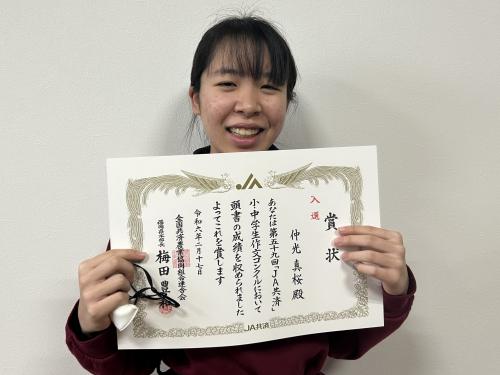 JA
入選
賞状
仲光 真桜 殿
あなたは第五十九回「JA共済」
小・中学生作文コンクールにおいて
頭書の成績を収められました
よってこれを賞します
令和六年二月十七日
全国共済農業協同組合連合会
梅田
JA共済